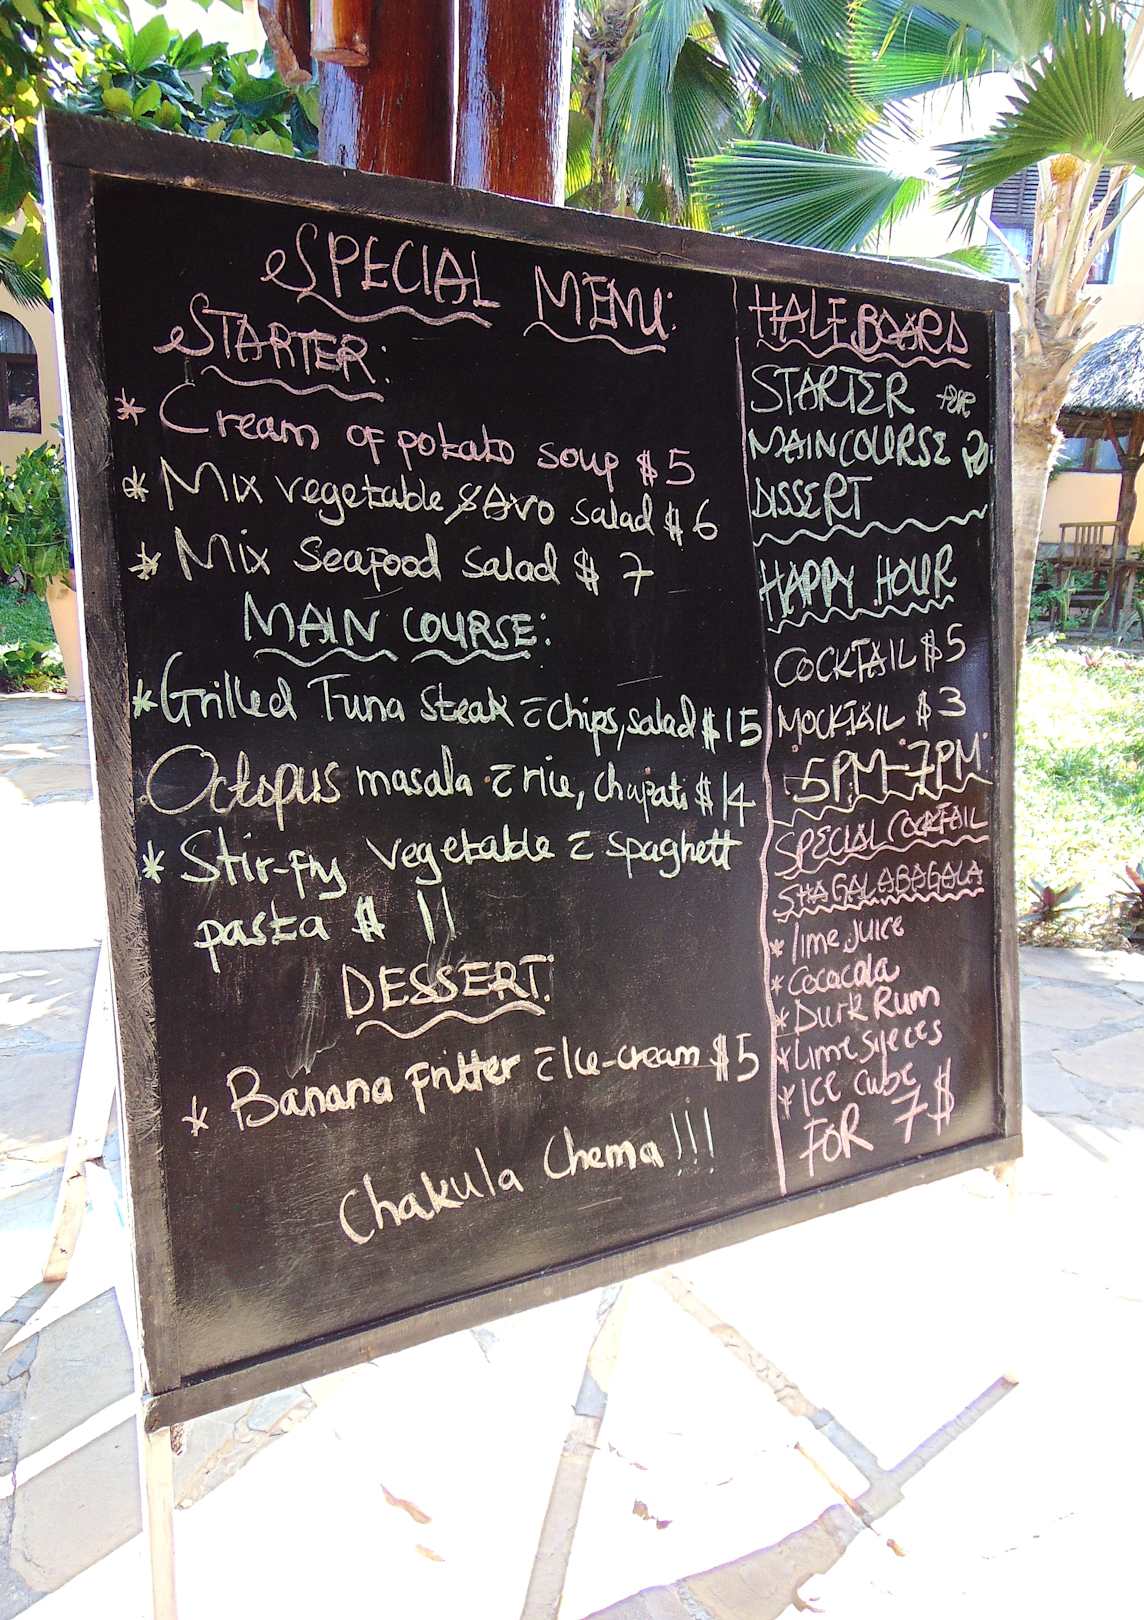 SPECIAL MENU:
STARTER:
* Cream of potato soup $5
* Mix vegetable & Avo salad $6
* Mix Seafood Salad $ 7
MAIN COURSE:
* Grilled Tuna Steak = chips, salad $15
Octopus masala = rice, chapati $14
* Stir-fry vegetable = spaghett
pasta $ 11
DESSERT:
* Banana Fritter = Ice-cream $5
Chakula Chema !!!
HALF BOARD
STARTER
MAIN COURSE
DISSERT
HAPPY HOUR
COCKTAIL $5
MOCKTAIL $3
5PM-7PM
SPECIAL COCKTAIL
SHAGALABAGALA
* lime juice
* Cocacola
* Durk Rum
* Lime
* ICE cube
FOR 7$